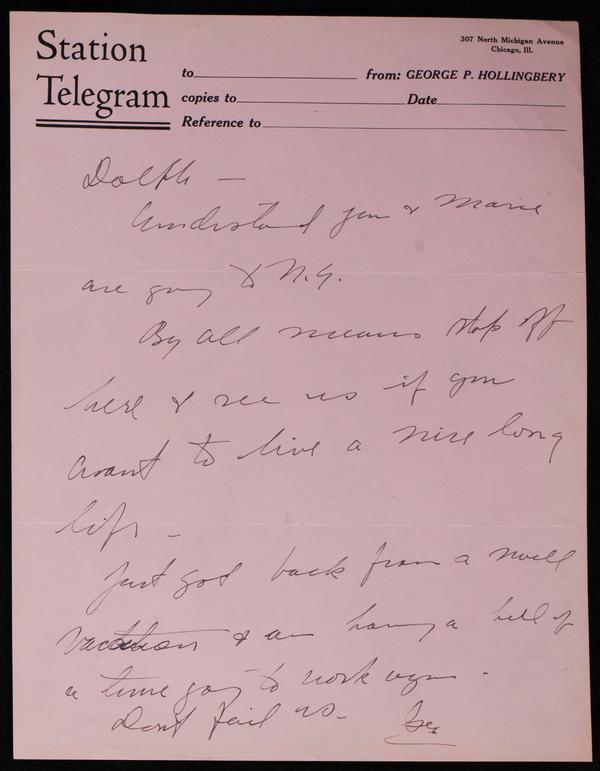 Station
Telegram
307 North Michigan Avenue
Chicago, Ill.
to from: GEORGE P. HOLLINGBERY
copies to Date
Reference to
Dolph —
Understand you & Marie
are going to N.Y.
By all means stop off
here & see us if you
want to live a nice long
life —
Just got back from a swell
vacation & am having a hell of
a time going to work again.
Dont fail us.
Geo